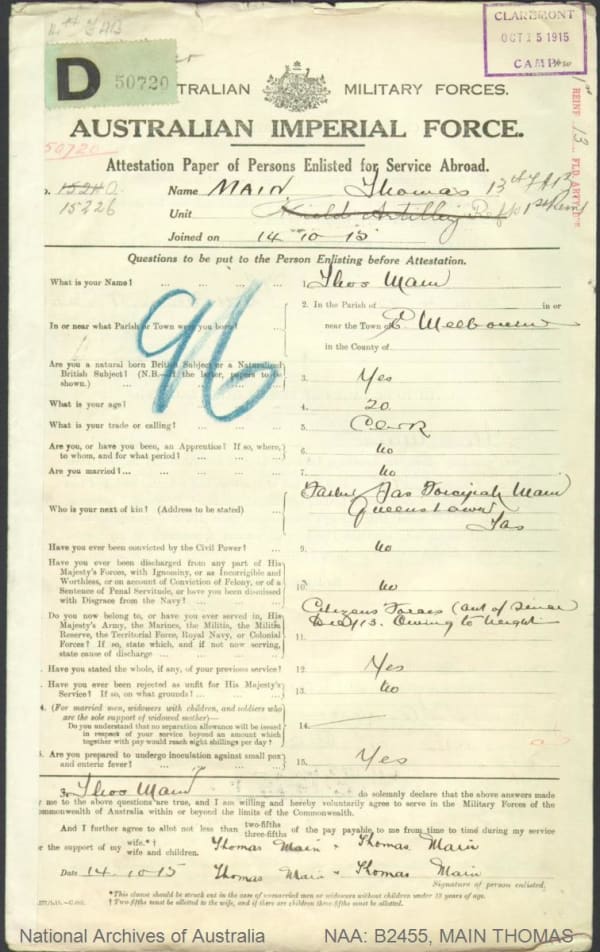 D 50720
CLAREMONT
OCT 15 1915
CAMP
TRALIAN MILITARY FORCES.
AUSTRALIAN IMPERIAL FORCE.
50720
Attestation Paper of Persons Enlisted for Service Abroad.
15226
Name MAIN Thomas
Unit Field Artillery
Joined on 14 10 15
REINF 13 FLD ARTY
Questions to be put to the Person Enlisting before Attestation.
What is your Name? 1. Thos Main
In or near what Parish or Town were you born? 2. In the Parish of in or
near the Town of E. Melbourne
in the County of
96
Are you a natural born British Subject or a Naturalized
British Subject? (N.B.—If the latter, papers to be
shown.) 3. Yes
What is your age? 4. 20
What is your trade or calling? 5. Clerk
Are you, or have you been, an Apprentice? If so, where,
to whom, and for what period? 6. No
Are you married? 7. No
Who is your next of kin? (Address to be stated) Father Jas Main
Queenstown
Tas
Have you ever been convicted by the Civil Power? 9. No
Have you ever been discharged from any part of His
Majesty's Forces, with Ignominy, or as Incorrigible and
Worthless, or on account of Conviction of Felony, or of a
Sentence of Penal Servitude, or have you been dismissed
with Disgrace from the Navy? 10. No
Do you now belong to, or have you ever served in, His
Majesty's Army, the Marines, the Militia, the Militia
Reserve, the Territorial Force, Royal Navy, or Colonial
Forces? If so, state which, and if not now serving,
state cause of discharge 11. Citizens Forces
Owing to height
Have you stated the whole, if any, of your previous service? 12. Yes
Have you ever been rejected as unfit for His Majesty's
Service? If so, on what grounds? 13. No
4. (For married men, widowers with children, and soldiers who
are the sole support of widowed mother)—
Do you understand that no separation allowance will be issued
in respect of your service beyond an amount which
together with pay would reach eight shillings per day? 14.
Are you prepared to undergo inoculation against small pox
and enteric fever? 15. Yes
Thos Main do solemnly declare that the above answers made
me to the above questions are true, and I am willing and hereby voluntarily agree to serve in the Military Forces of the
mmonwealth of Australia within or beyond the limits of the Commonwealth.
And I further agree to allot not less than two-fifths three-fifths of the pay payable to me from time to time during my service
r the support of my wife.*† wife and children. Thomas Main Thomas Main
Date 14-10-15 Thomas Main Thomas Main
Signature of person enlisted.
*This clause should be struck out in the case of unmarried men or widowers without children under 18 years of age.
† Two-fifths must be allotted to the wife, and if there are children three-fifths must be allotted.
National Archives of Australia NAA: B2455, MAIN THOMAS